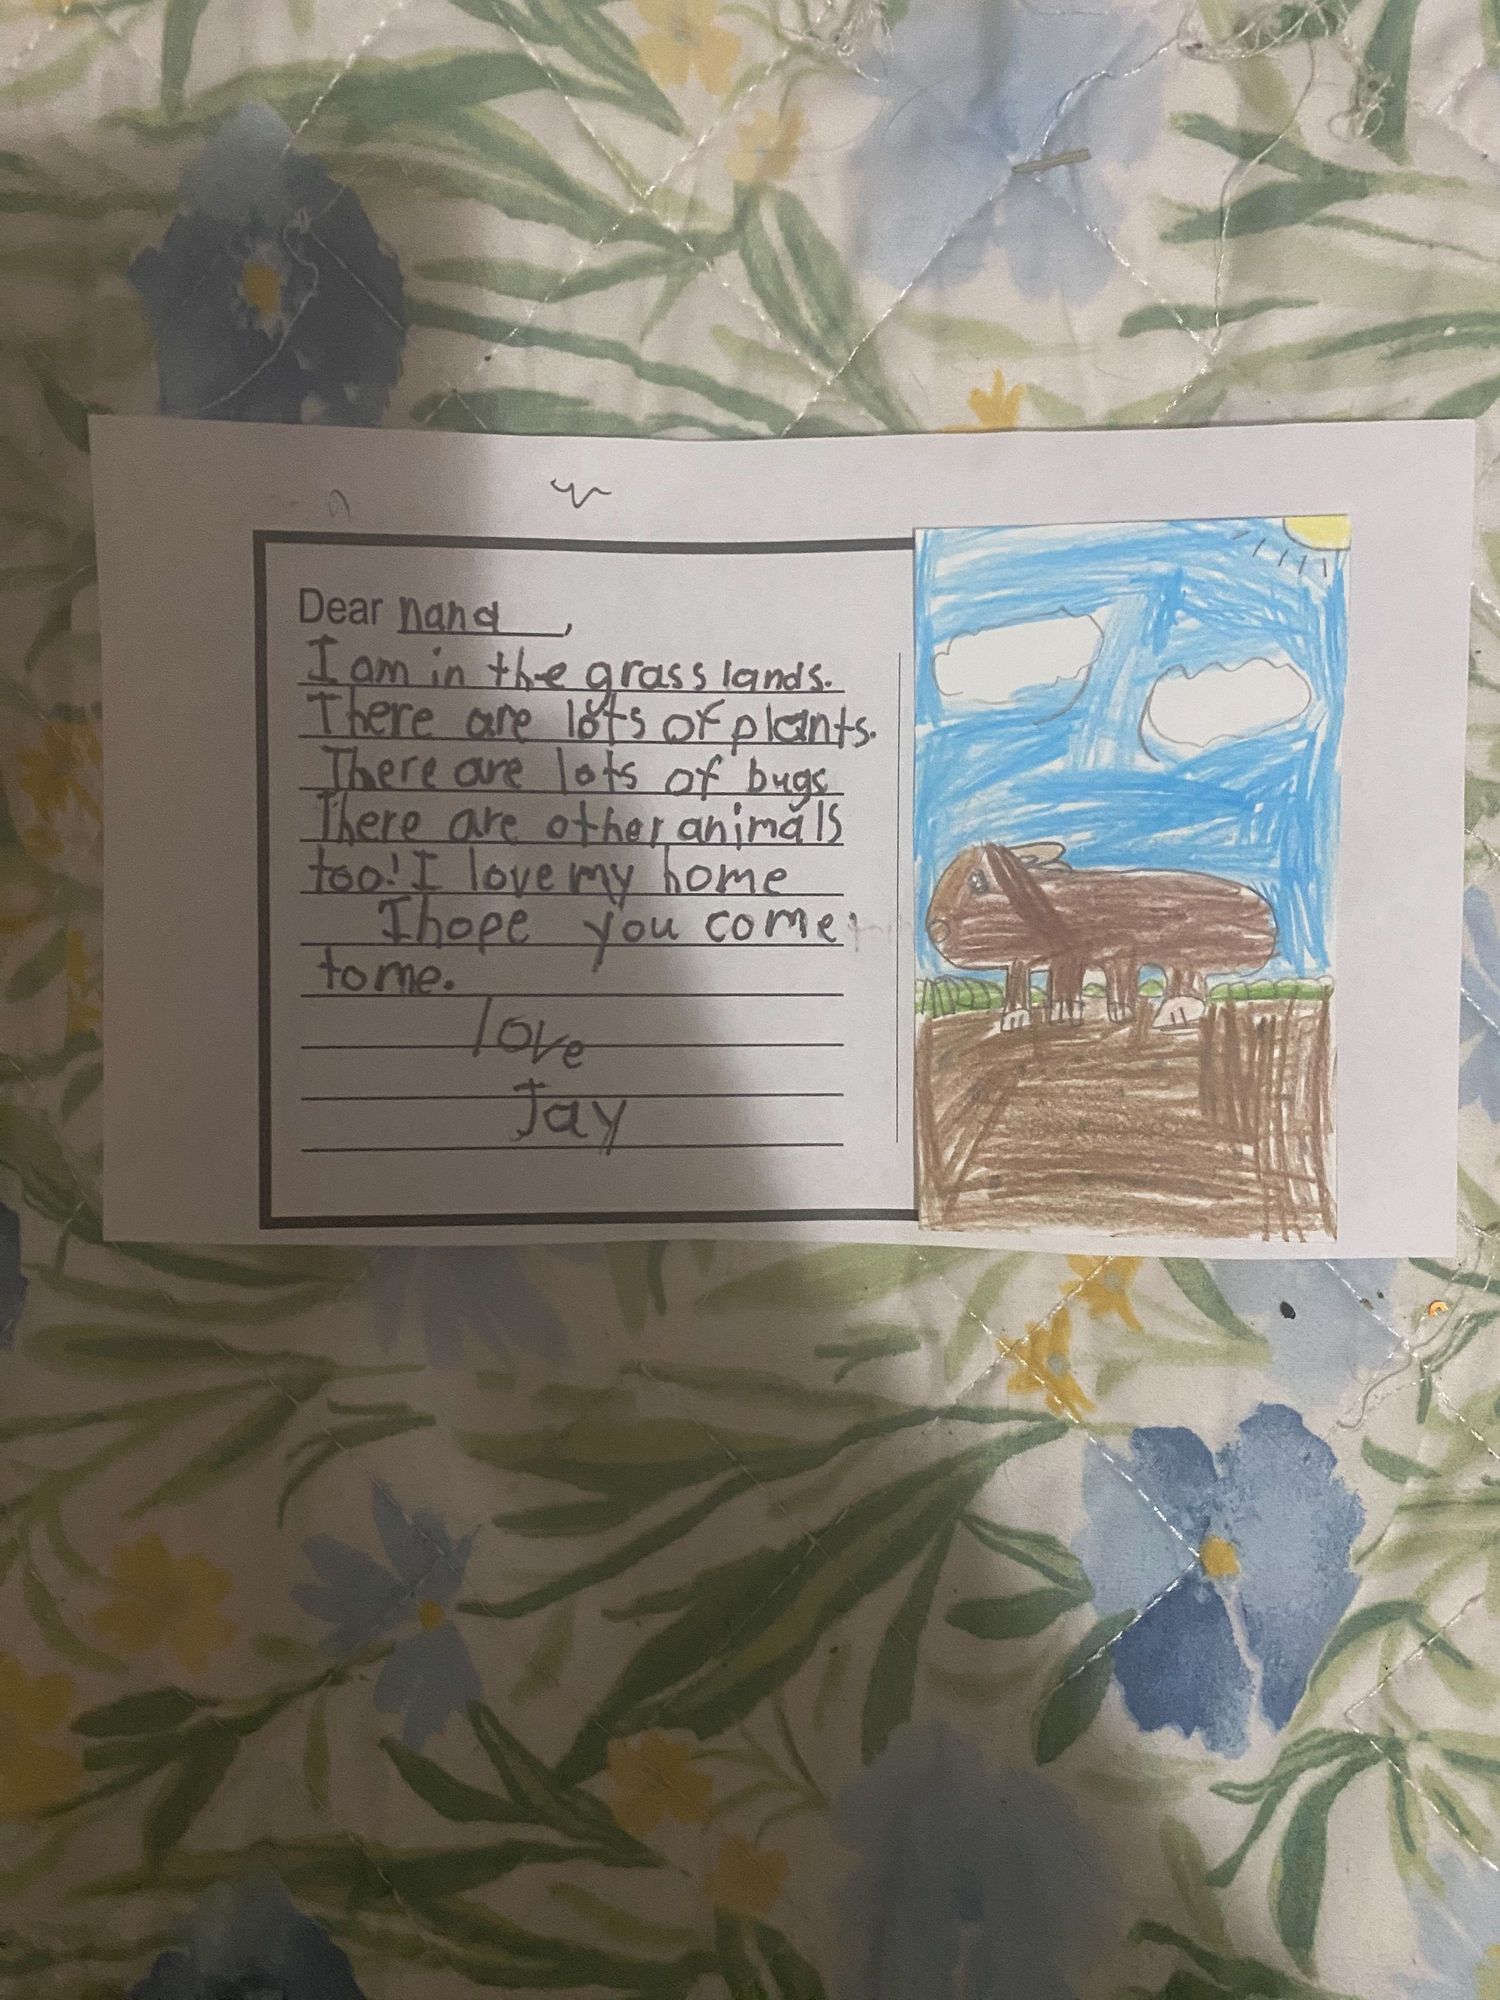 Dear nana,
I am in the grass lands.
There are lots of plants.
There are lots of bugs
There are other animals
too! I love my home
I hope you come
to me.
love
Jay